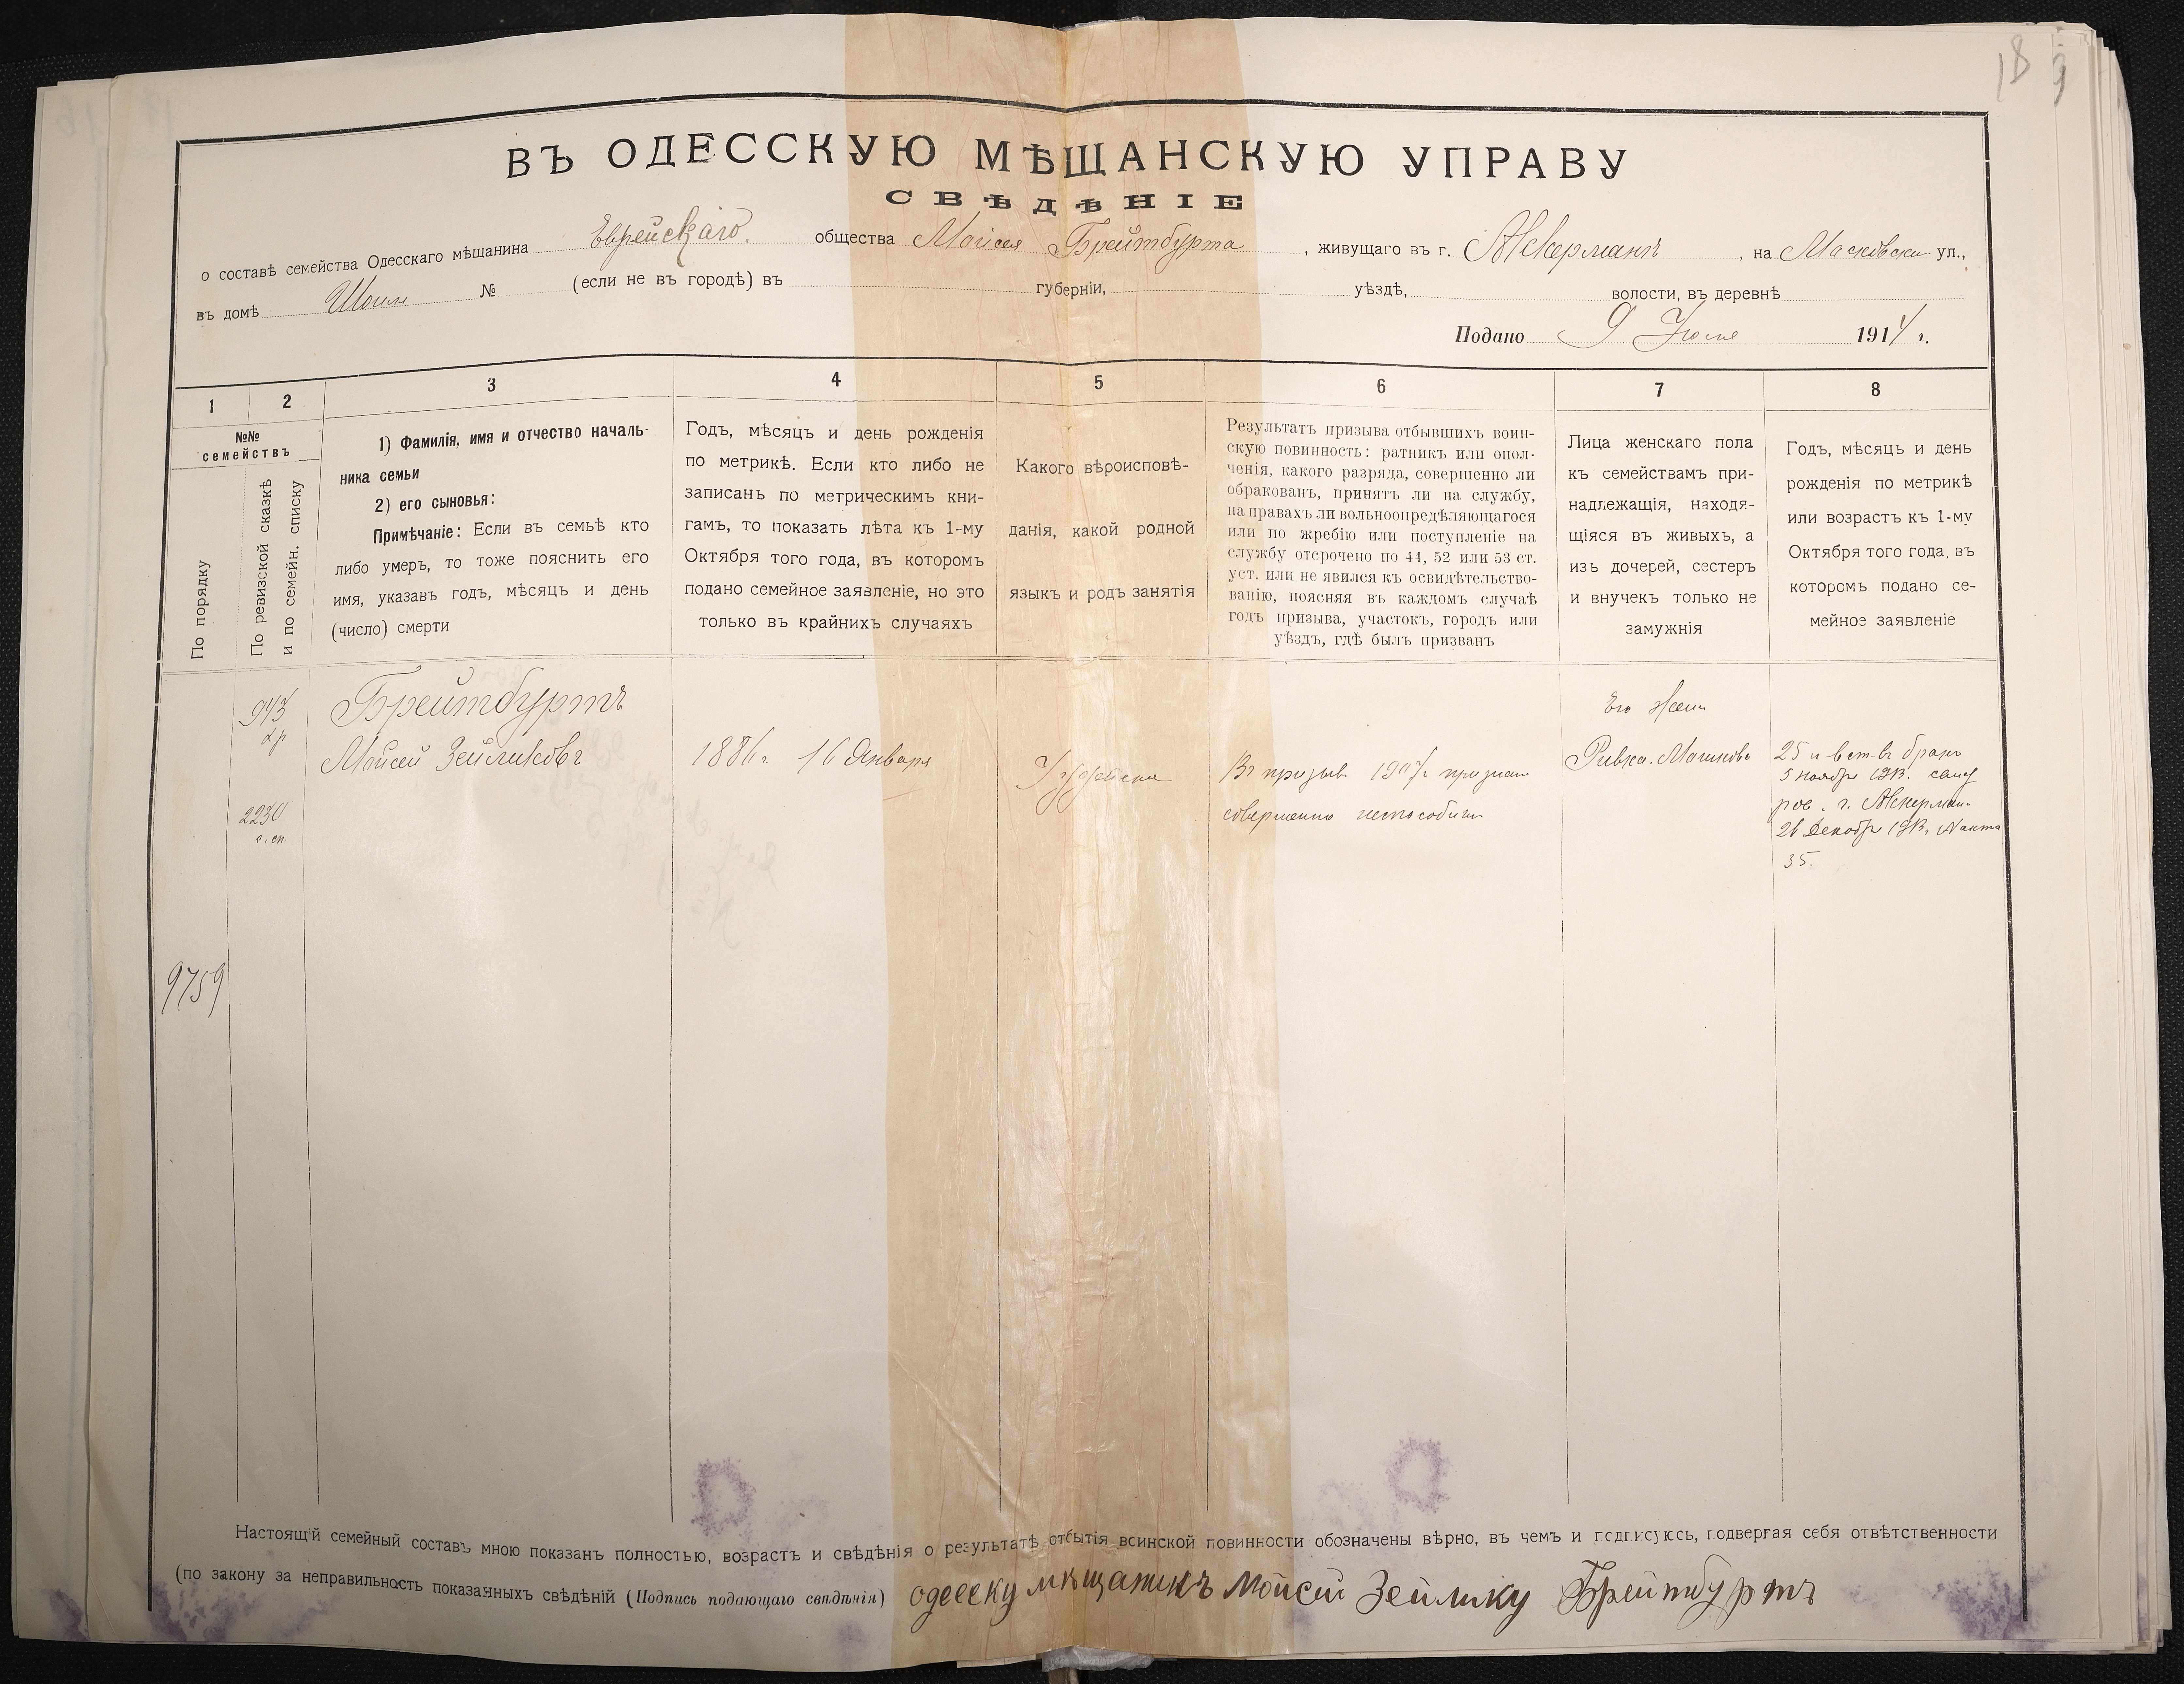 18
ВЪ ОДЕССКУЮ МѢЩАНСКУЮ УПРАВУ
СВѢДѢНІЕ
о составѣ семейства Одесскаго мѣщанина Еврейскаго общества Моисея Брейтбурта, живущаго въ г. Аккерманѣ, на Московской ул.,
въ домѣ № (если не въ городѣ) въ губерніи, уѣздѣ, волости, въ деревнѣ
Подано 9 Іюля 1914 г.
1
2
3
4
5
6
7
8
№№
семействъ
По порядку
По ревизской сказкѣ
и по семейн. списку
1) Фамилія, имя и отчество началь-
ника семьи
2) его сыновья:
Примѣчаніе: Если въ семьѣ кто
либо умеръ, то тоже пояснить его
имя, указавъ годъ, мѣсяцъ и день
(число) смерти
Годъ, мѣсяцъ и день рожденія
по метрикѣ. Если кто либо не
записанъ по метрическимъ кни-
гамъ, то показать лѣта къ 1-му
Октября того года, въ которомъ
подано семейное заявленіе, но это
только въ крайнихъ случаяхъ
Какого вѣроисповѣ-
данія, какой родной
языкъ и родъ занятія
Результатъ призыва отбывшихъ воин-
скую повинность: ратникъ или опол-
ченія, какого разряда, совершенно ли
обракованъ, принятъ ли на службу,
на правахъ ли вольноопредѣляющагося
или по жребію или поступленіе на
службу отсрочено по 44, 52 или 53 ст.
уст. или не явился къ освидѣтельство-
ванію, поясняя въ каждомъ случаѣ
годъ призыва, участокъ, городъ или
уѣздъ, гдѣ былъ призванъ
Лица женскаго пола
къ семействамъ при-
надлежащія, находя-
щіяся въ живыхъ, а
изъ дочерей, сестеръ
и внучекъ только не
замужнія
Годъ, мѣсяцъ и день
рожденія по метрикѣ
или возрастъ къ 1-му
Октября того года, въ
которомъ подано се-
мейное заявленіе
943
Брейтбуртъ
Моисей Зейликовъ
1886 г. 16 Января
Іудейска
Въ призыв 1907 г. признан
совершенно неспособнм
Его Жена
Ривка Мошкова
25 л вст. въ бракъ
5 ноября 1913.
г. Аккерман
26 Декабр 1913 г. № акта
35.
2230
с. сп.
9759
Настоящій семейный составъ мною показанъ полностью, возрастъ и свѣдѣнія о результатѣ отбытія воинской повинности обозначены вѣрно, въ чемъ и подписуюсь, подвергая себя отвѣтственности
(по закону за неправильность показанныхъ свѣдѣній (Подпись подающаго свѣдѣнія) одееску мѣщаникъ Мойсей Зейлику Брейтбуртъ